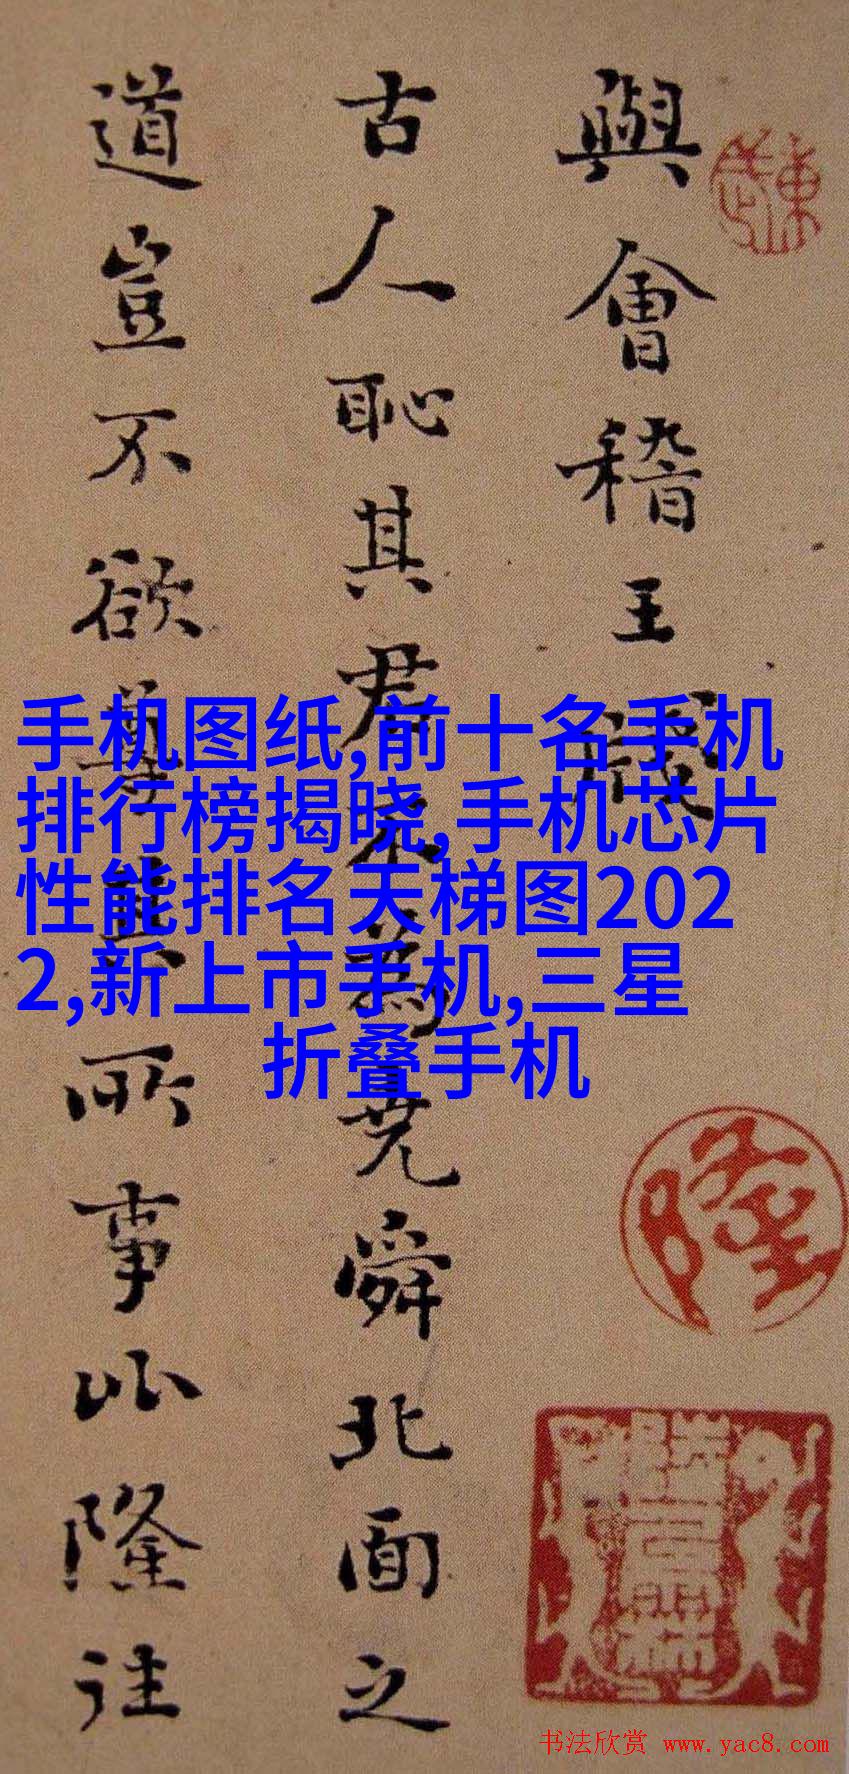 與會稽王牋
古人恥其君不為堯舜北面之
道豈不欲尊其所事比隆往
手机图纸,前十名手机
排行榜揭晓,手机芯片
性能排名天梯图202
2,新上市手机,三星
折叠手机
隆
书法欣赏 www.yac8.com